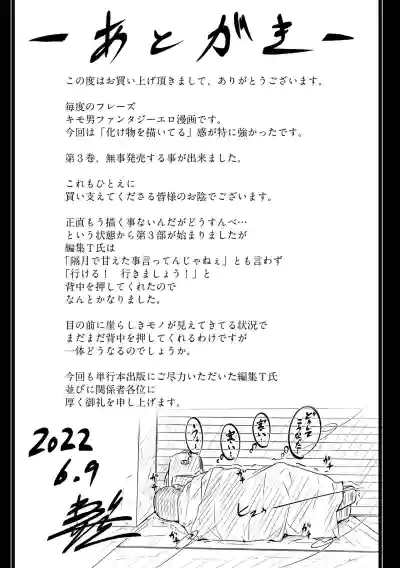 ーあとがきー
この度はお買い上げ頂きまして、ありがとうございます。
毎度のフレーズ
キモ男ファンタジーエロ漫画です。
今回は「化け物を描いてる」感が特に強かったです。
第3巻、無事発売する事が出来ました。
これもひとえに
買い支えてくださる皆様のお陰でございます。
正直もう描く事ないんだがどうすんべ…
という状態から第3部が始まりましたが
編集T氏は
「隔月で甘えた事言ってんじゃねぇ」とも言わず
「行ける! 行きましょう!」と
背中を押してくれたので
なんとかなりました。
目の前に崖らしきモノが見えてきてる状況で
まだまだ背中を押してくれるわけですが
一体どうなるのでしょうか。
今回も単行本出版にご尽力いただいた編集T氏
並びに関係者各位に
厚く御礼を申し上げます。
どうして
こうなった…
寒い…
寒い…
ヒュゥ
2022
6.9